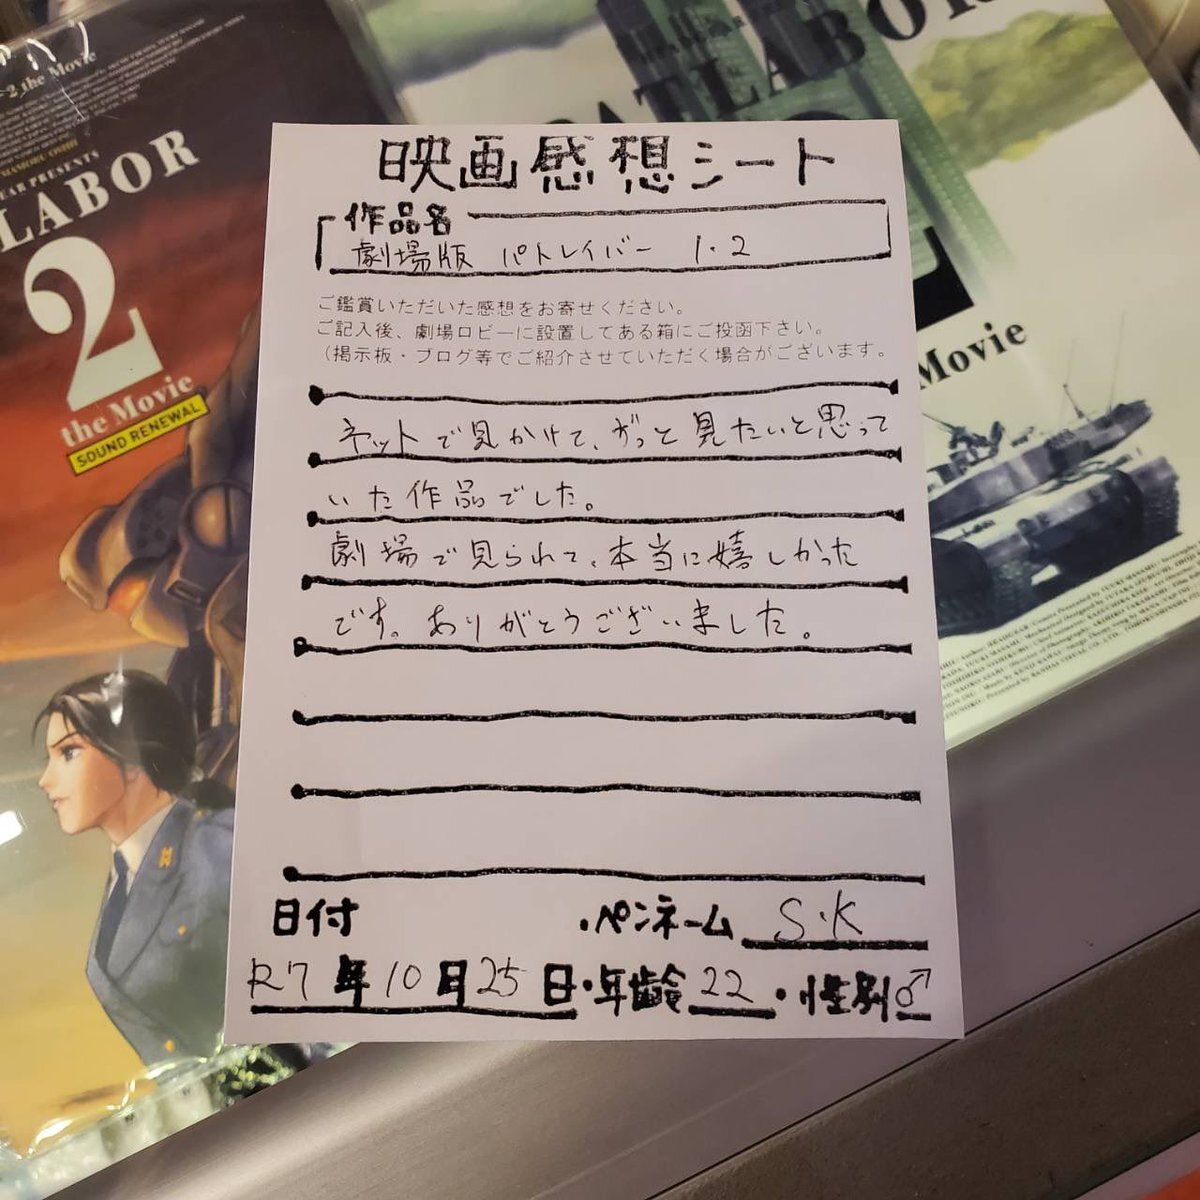 映画感想シート
作品名
劇場版 パトレイバー 1・2
ご鑑賞いただいた感想をお寄せください。
ご記入後、劇場ロビーに設置してある箱にご投函下さい。
（掲示板・ブログ等でご紹介させていただく場合がございます。
ネットで見かけて、ずっと見たいと思って
いた作品でした。
劇場で見られて、本当に嬉しかった
です。ありがとうございました。
日付 ・ペンネーム S.K
R7年10月25日・年齢22・性別♂
2 the Movie
PRESENTS
LABOR
2
the Movie
SOUND RENEWAL
ATLABOR
Movie